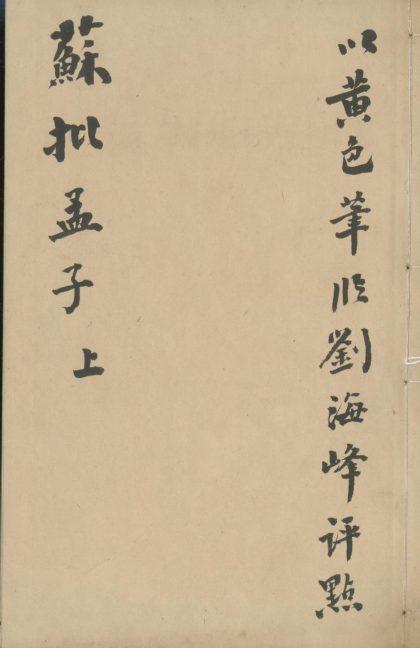 以黄色筆臨劉海峰評點
蘇批孟子上